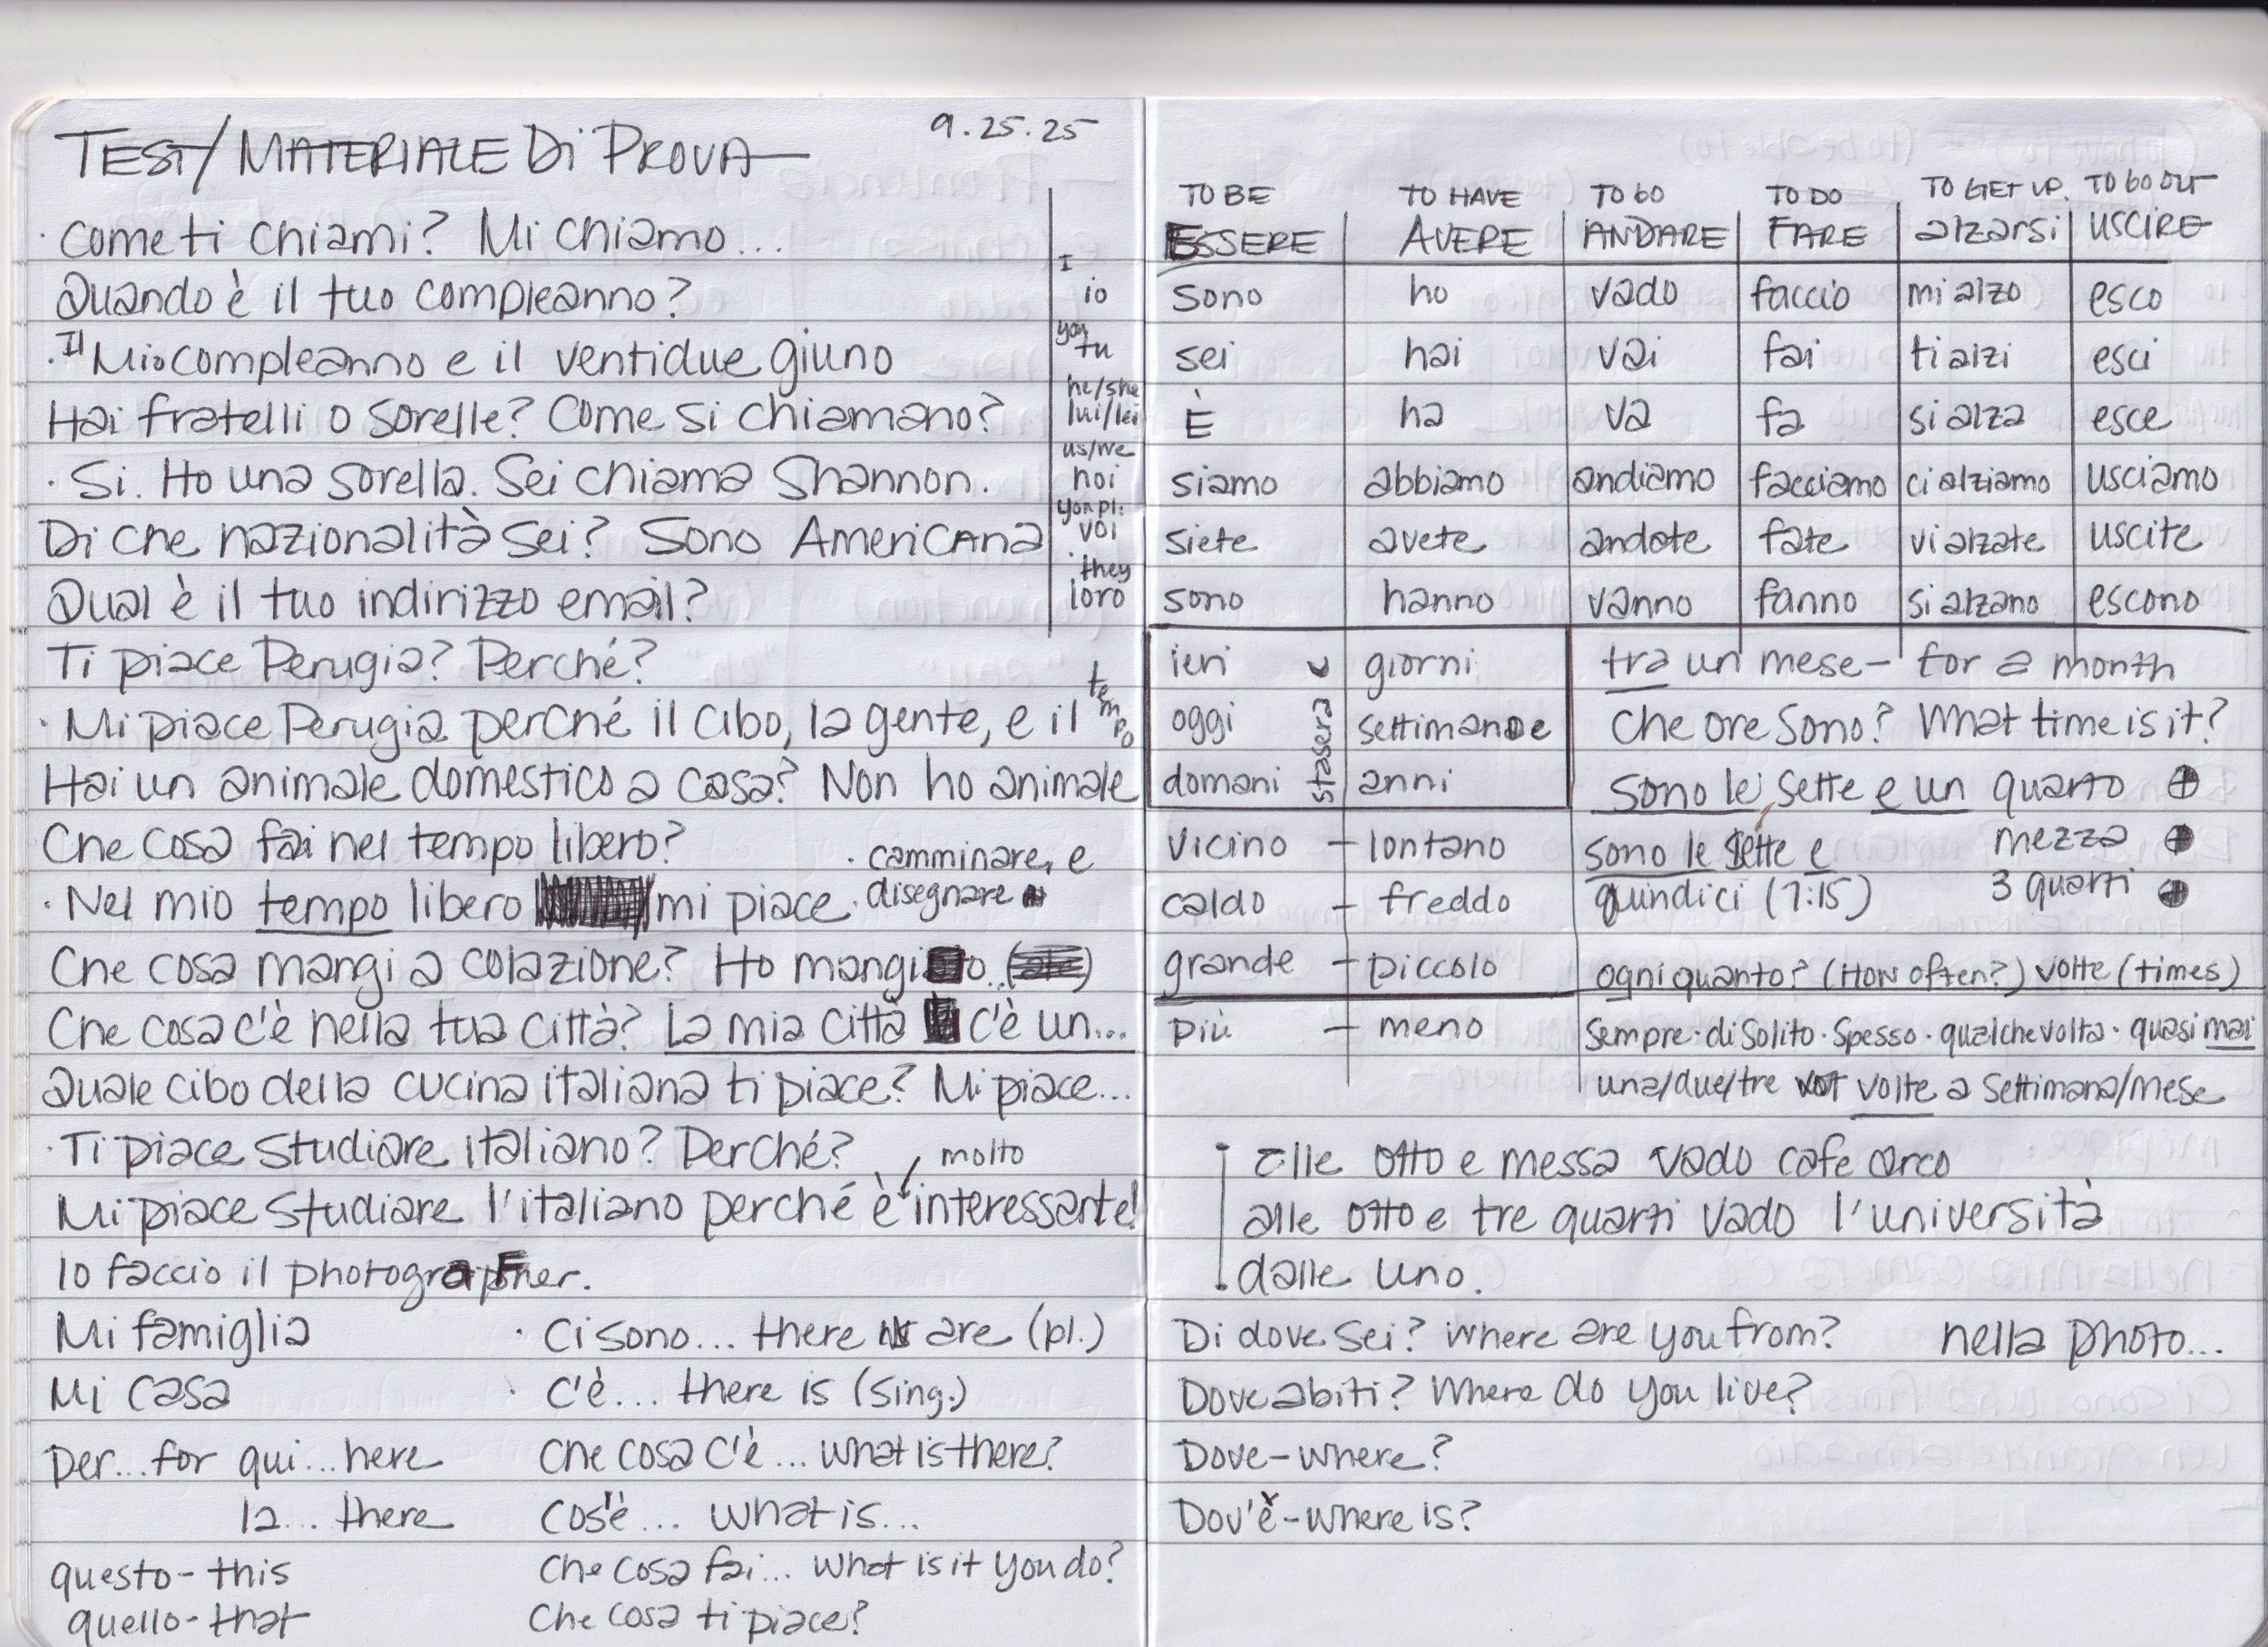 TEST/MATERIALE Di PROVA 9.25.25
· Come ti chiami? Mi chiamo...
Quando è il tuo compleanno?
· Il Mio compleanno e il ventidue giuno
Hai fratelli o sorelle? Come si chiamano?
· Si. Ho una sorella. Sei chiama Shannon.
Di che nazionalità sei? Sono Americana
Qual è il tuo indirizzo email?
Ti piace Perugia? Perché?
· Mi piace Perugia perché il cibo, la gente, e il tempo
Hai un animale domestico a casa? Non ho animale
Che cosa fai nel tempo libero?
· camminare, e
· Nel mio tempo libero mi piace · disegnare
Che cosa mangi a colazione? Ho mangio..
Che cosa c'è nella tua città? La mia città c'è un...
Quale cibo della cucina italiana ti piace? Mi piace...
· Ti piace studiare italiano? Perché?
molto
Mi piace studiare l'italiano perché è interessante!
Io faccio il photographer.
Mi famiglia · Ci sono... there are (pl.)
Mi casa · C'è... there is (sing.)
Per...for qui...here Che cosa c'è... what is there?
la... there Cos'è... what is...
questo - this Che cosa fai... what is it you do?
quello - that Che cosa ti piace?
TO BE TO HAVE TO GO TO DO TO GET UP. TO GO OUT
ESSERE AVERE ANDARE FARE alzarsi USCIRE
I
io sono ho vado faccio mi alzo esco
you
tu sei hai vai fai ti alzi esci
he/she
lui/lei È ha va fa si alza esce
us/we
noi siamo abbiamo andiamo facciamo ci alziamo usciamo
you pl.
voi siete avete andate fate vi alzate uscite
they
loro sono hanno vanno fanno si alzano escono
ieri giorni tra un mese - for a month
oggi stasera settimane Che ore sono? What time is it?
domani anni Sono le sette e un quarto
vicino - lontano sono le sette e mezza
caldo - freddo quindici (7:15) 3 quarti
grande - piccolo ogni quanto? (HOW often?) volte (times)
più - meno sempre · di solito · spesso · qualche volta · quasi mai
una/due/tre volte a settimana/mese
alle otto e messa vado cafe arco
alle otto e tre quarti vado l'università
dalle uno.
Di dove sei? Where are you from? nella photo...
Dove abiti? Where do you live?
Dove - where?
Dov'è - where is?